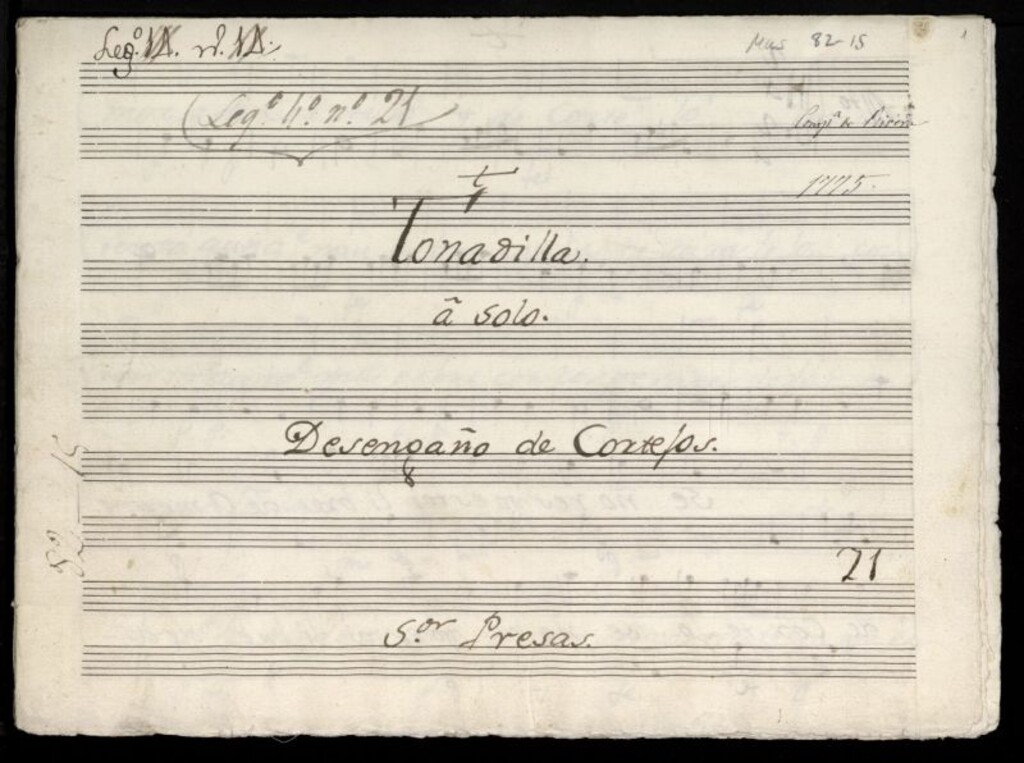 Leg.º VI. nº. VI.
Mus 82-15
Leg.º 4.º n.º 21
Comp.ª de
1775.
t
Tonadilla.
â solo.
Desengaño de Cortejos.
21
S.or Presas.